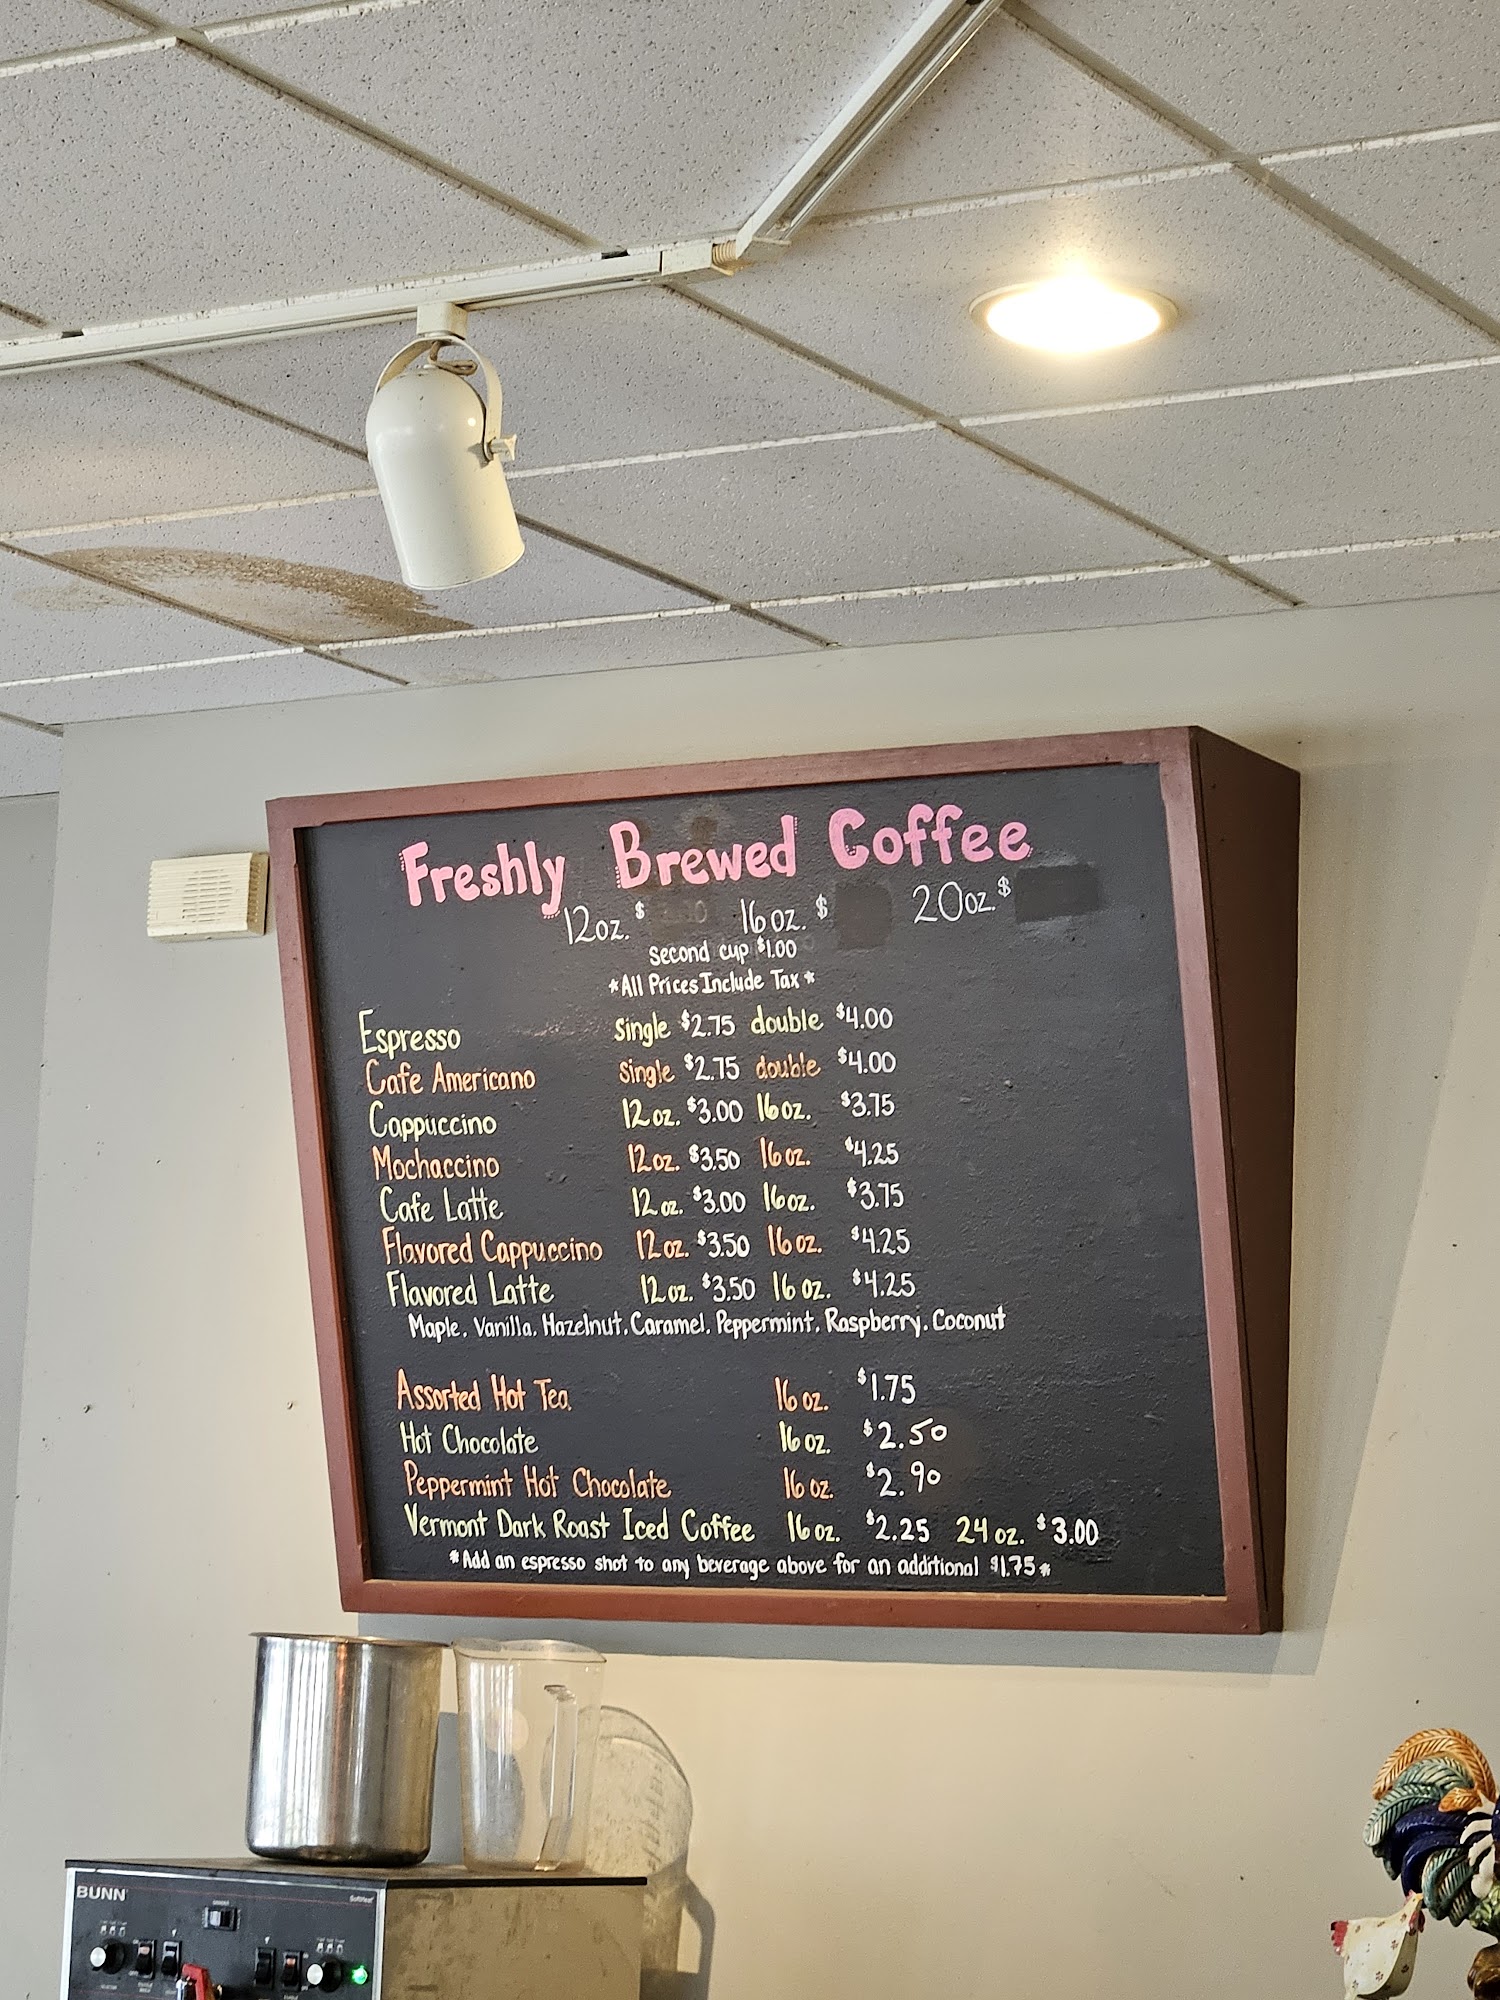 Freshly Brewed Coffee
12oz. $ 16oz. $ 20oz. $
second cup $1.00
*All Prices Include Tax*
Espresso single $2.75 double $4.00
Cafe Americano single $2.75 double $4.00
Cappuccino 12oz. $3.00 16oz. $3.75
Mochaccino 12oz. $3.50 16oz. $4.25
Cafe Latte 12oz. $3.00 16oz. $3.75
Flavored Cappuccino 12oz. $3.50 16oz. $4.25
Flavored Latte 12oz. $3.50 16oz. $4.25
Maple, Vanilla, Hazelnut, Caramel, Peppermint, Raspberry, Coconut
Assorted Hot Tea 16oz. $1.75
Hot Chocolate 16oz. $2.50
Peppermint Hot Chocolate 16oz. $2.90
Vermont Dark Roast Iced Coffee 16oz. $2.25 24oz. $3.00
*Add an espresso shot to any beverage above for an additional $1.75*
BUNN